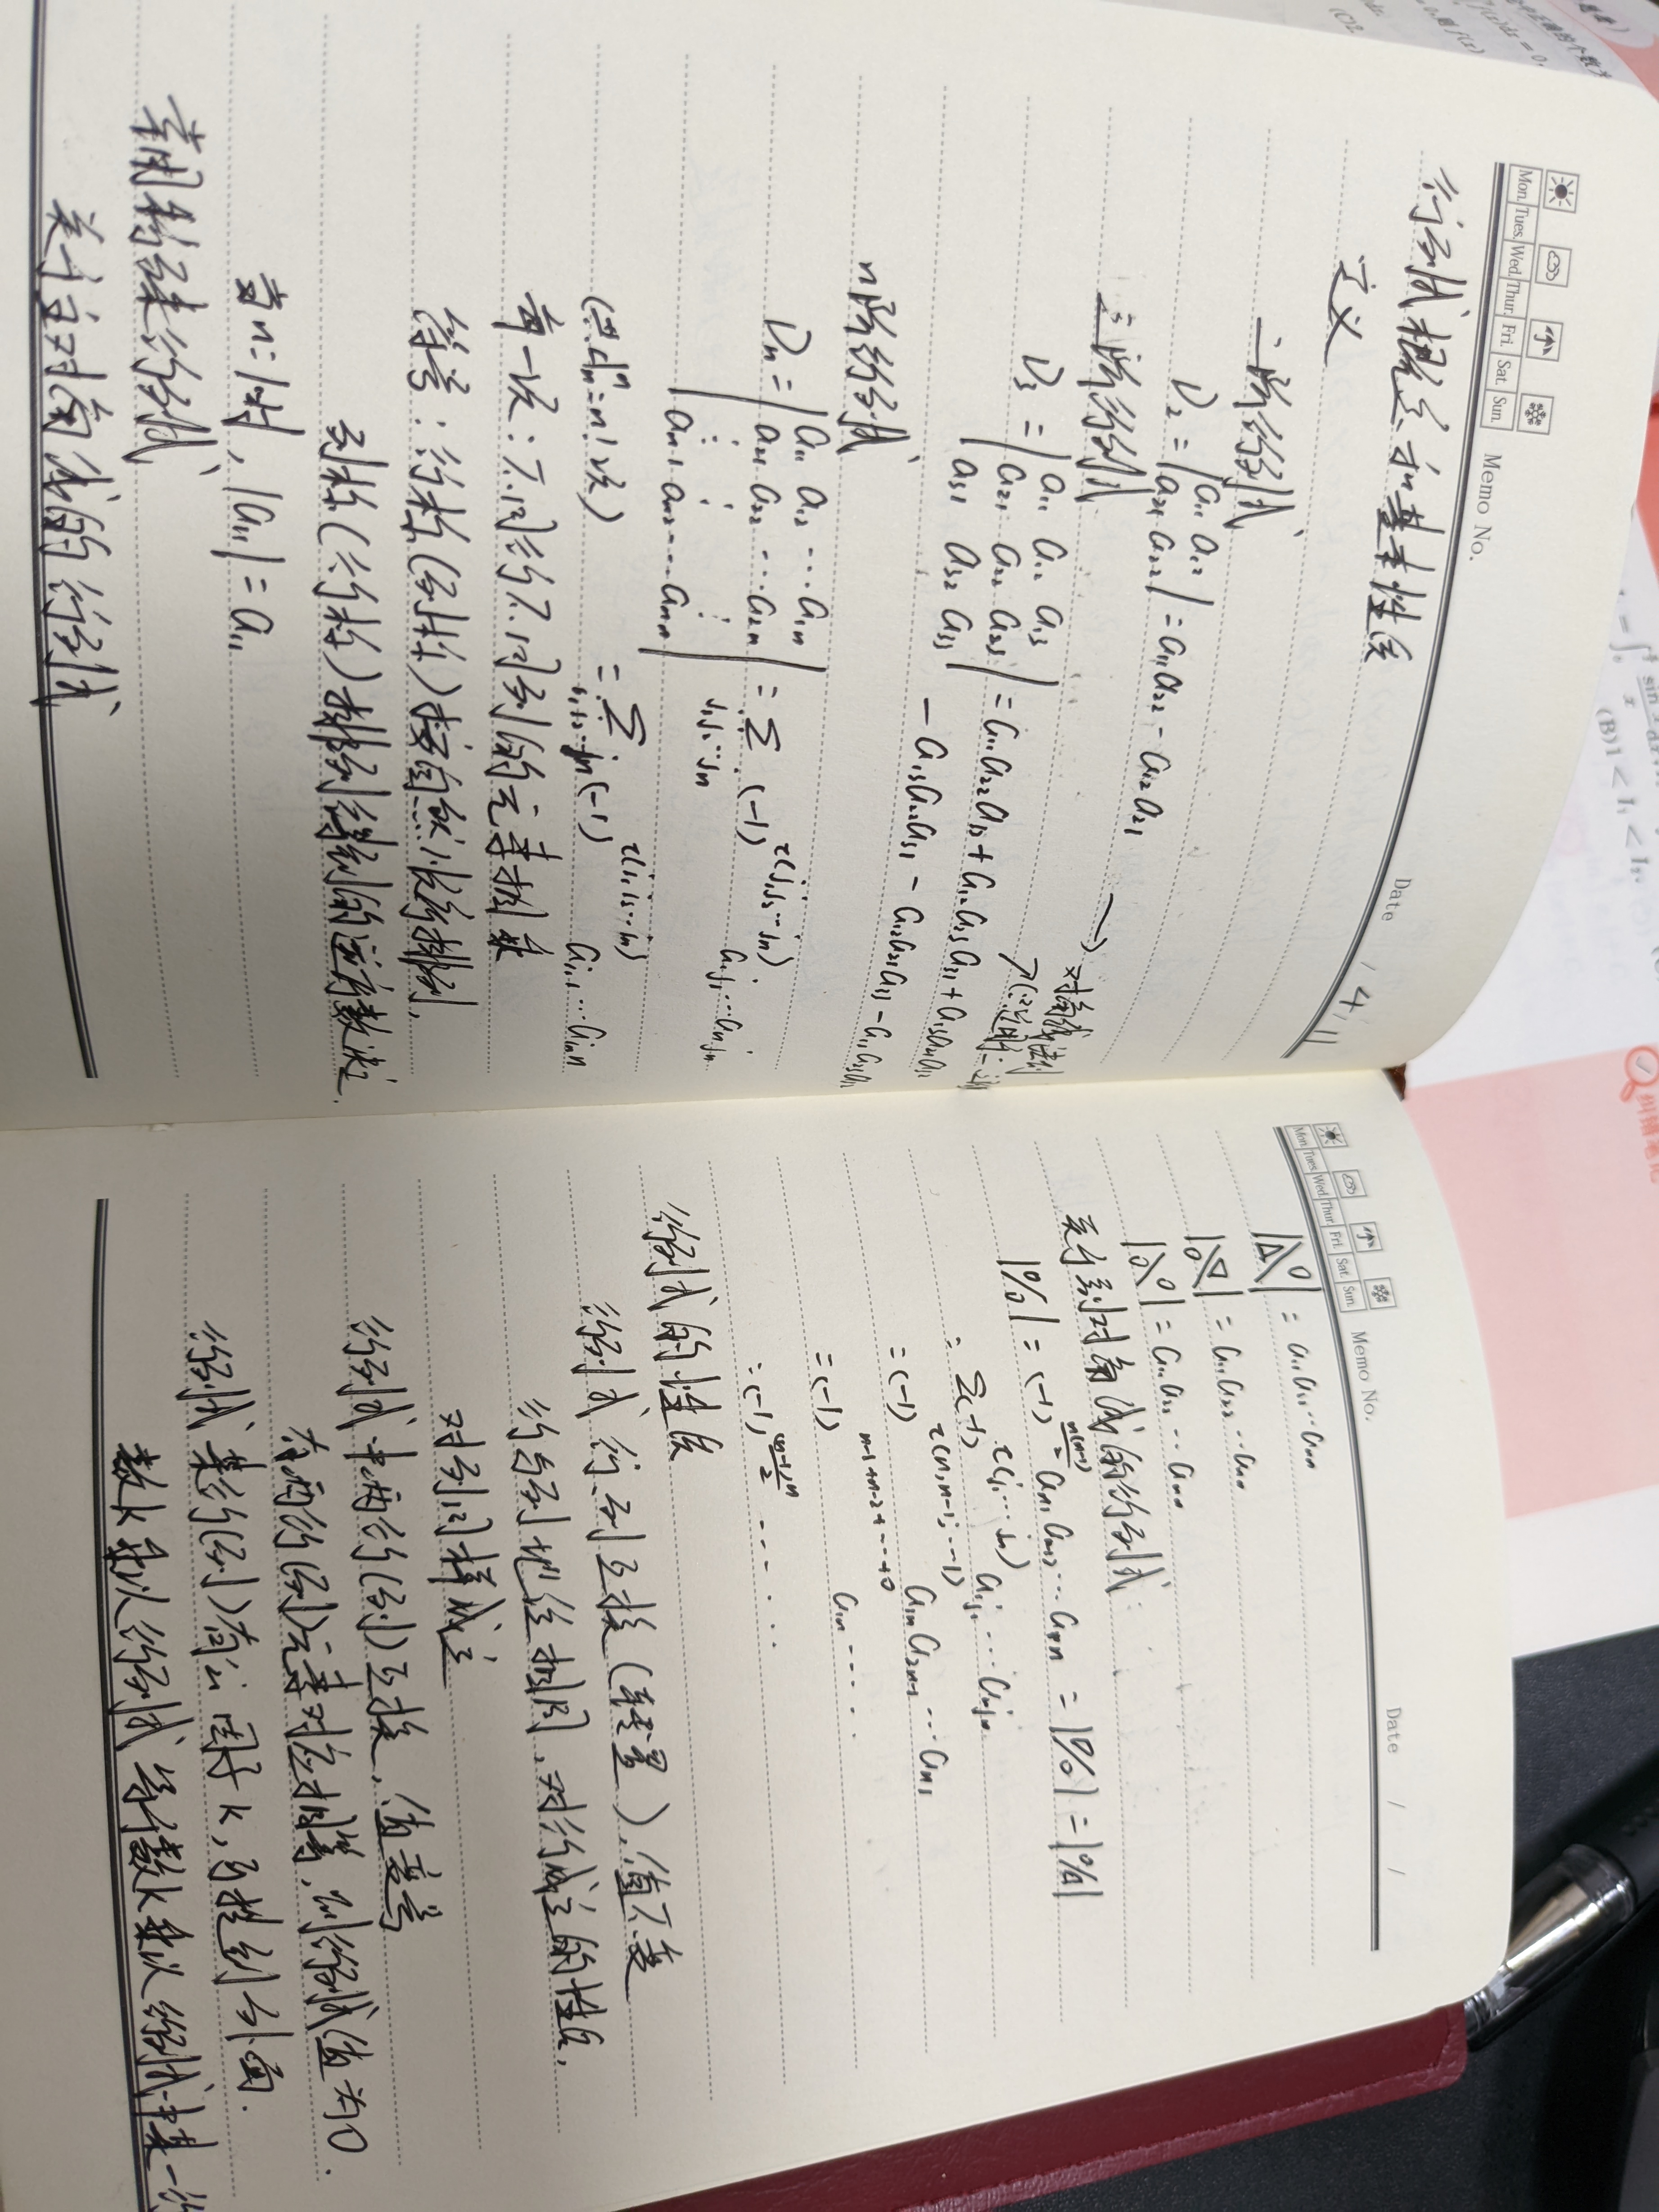 Mon. Tues. Wed. Thur. Fri. Sat. Sun.
Memo No.
Date / 4/1
行列式概念和基本性质
定义
二阶行列式
D₂ = |a₁₁ a₁₂
a₂₁ a₂₂| = a₁₁a₂₂ - a₁₂a₂₁
三阶行列式 → 对角线法则
D₃ = |a₁₁ a₁₂ a₁₃
a₂₁ a₂₂ a₂₃ = a₁₁a₂₂a₃₃ + a₁₂a₂₃a₃₁ + a₁₃a₂₁a₃₂
a₃₁ a₃₂ a₃₃| - a₁₃a₂₂a₃₁ - a₁₂a₂₁a₃₃ - a₁₁a₂₃a₃₂
n阶行列式
Dₙ = |a₁₁ a₁₂ ⋯ a₁ₙ
a₂₁ a₂₂ ⋯ a₂ₙ = Σ (-1)^τ(j₁j₂⋯jₙ) a₁j₁⋯aₙjₙ
⋮ ⋮ ⋮ j₁j₂⋯jₙ
aₙ₁ aₙ₂ ⋯ aₙₙ|
(共Aₙⁿ=n!项) = Σ (-1)^τ(i₁i₂⋯iₙ) aᵢ₁₁⋯aᵢₙn
i₁i₂⋯iₙ
每一项：不同行不同列的元素相乘
符号：行标(列标)按自然顺序排列,
列标(行标)排列得到的逆序数决定.
当n=1时, |a₁₁| = a₁₁
常用特殊行列式
关于主对角线的行列式
Mon. Tues. Wed. Thur. Fri. Sat. Sun.
Memo No.
Date / /
= a₁₁a₂₂⋯aₙₙ
= a₁₁a₂₂⋯aₙₙ
= a₁₁a₂₂⋯aₙₙ
关于副对角线的行列式：
= (-1)^n(n-1)/2 aₙ₁
= Σ(-1)^τ(j₁⋯jₙ) a₁j₁⋯aₙjₙ
= (-1)^τ(n,n-1,⋯1) a₁ₙa₂ₙ₋₁⋯aₙ₁
= (-1)^n-1+n-2+⋯+0 a₁ₙ⋯⋯
= (-1)^(n-1)n/2 ⋯⋯
行列式的性质
行列式行、列互换(转置), 值不变
行与列地位相同, 对行成立的性质,
对列同样成立
行列式中两行(列)互换, 值变号
有两行(列)元素对应相等, 则行列式值为0.
行列式某行(列)有公因子k, 可提到外面.
数k乘以行列式等于数k乘以行列式中某一行